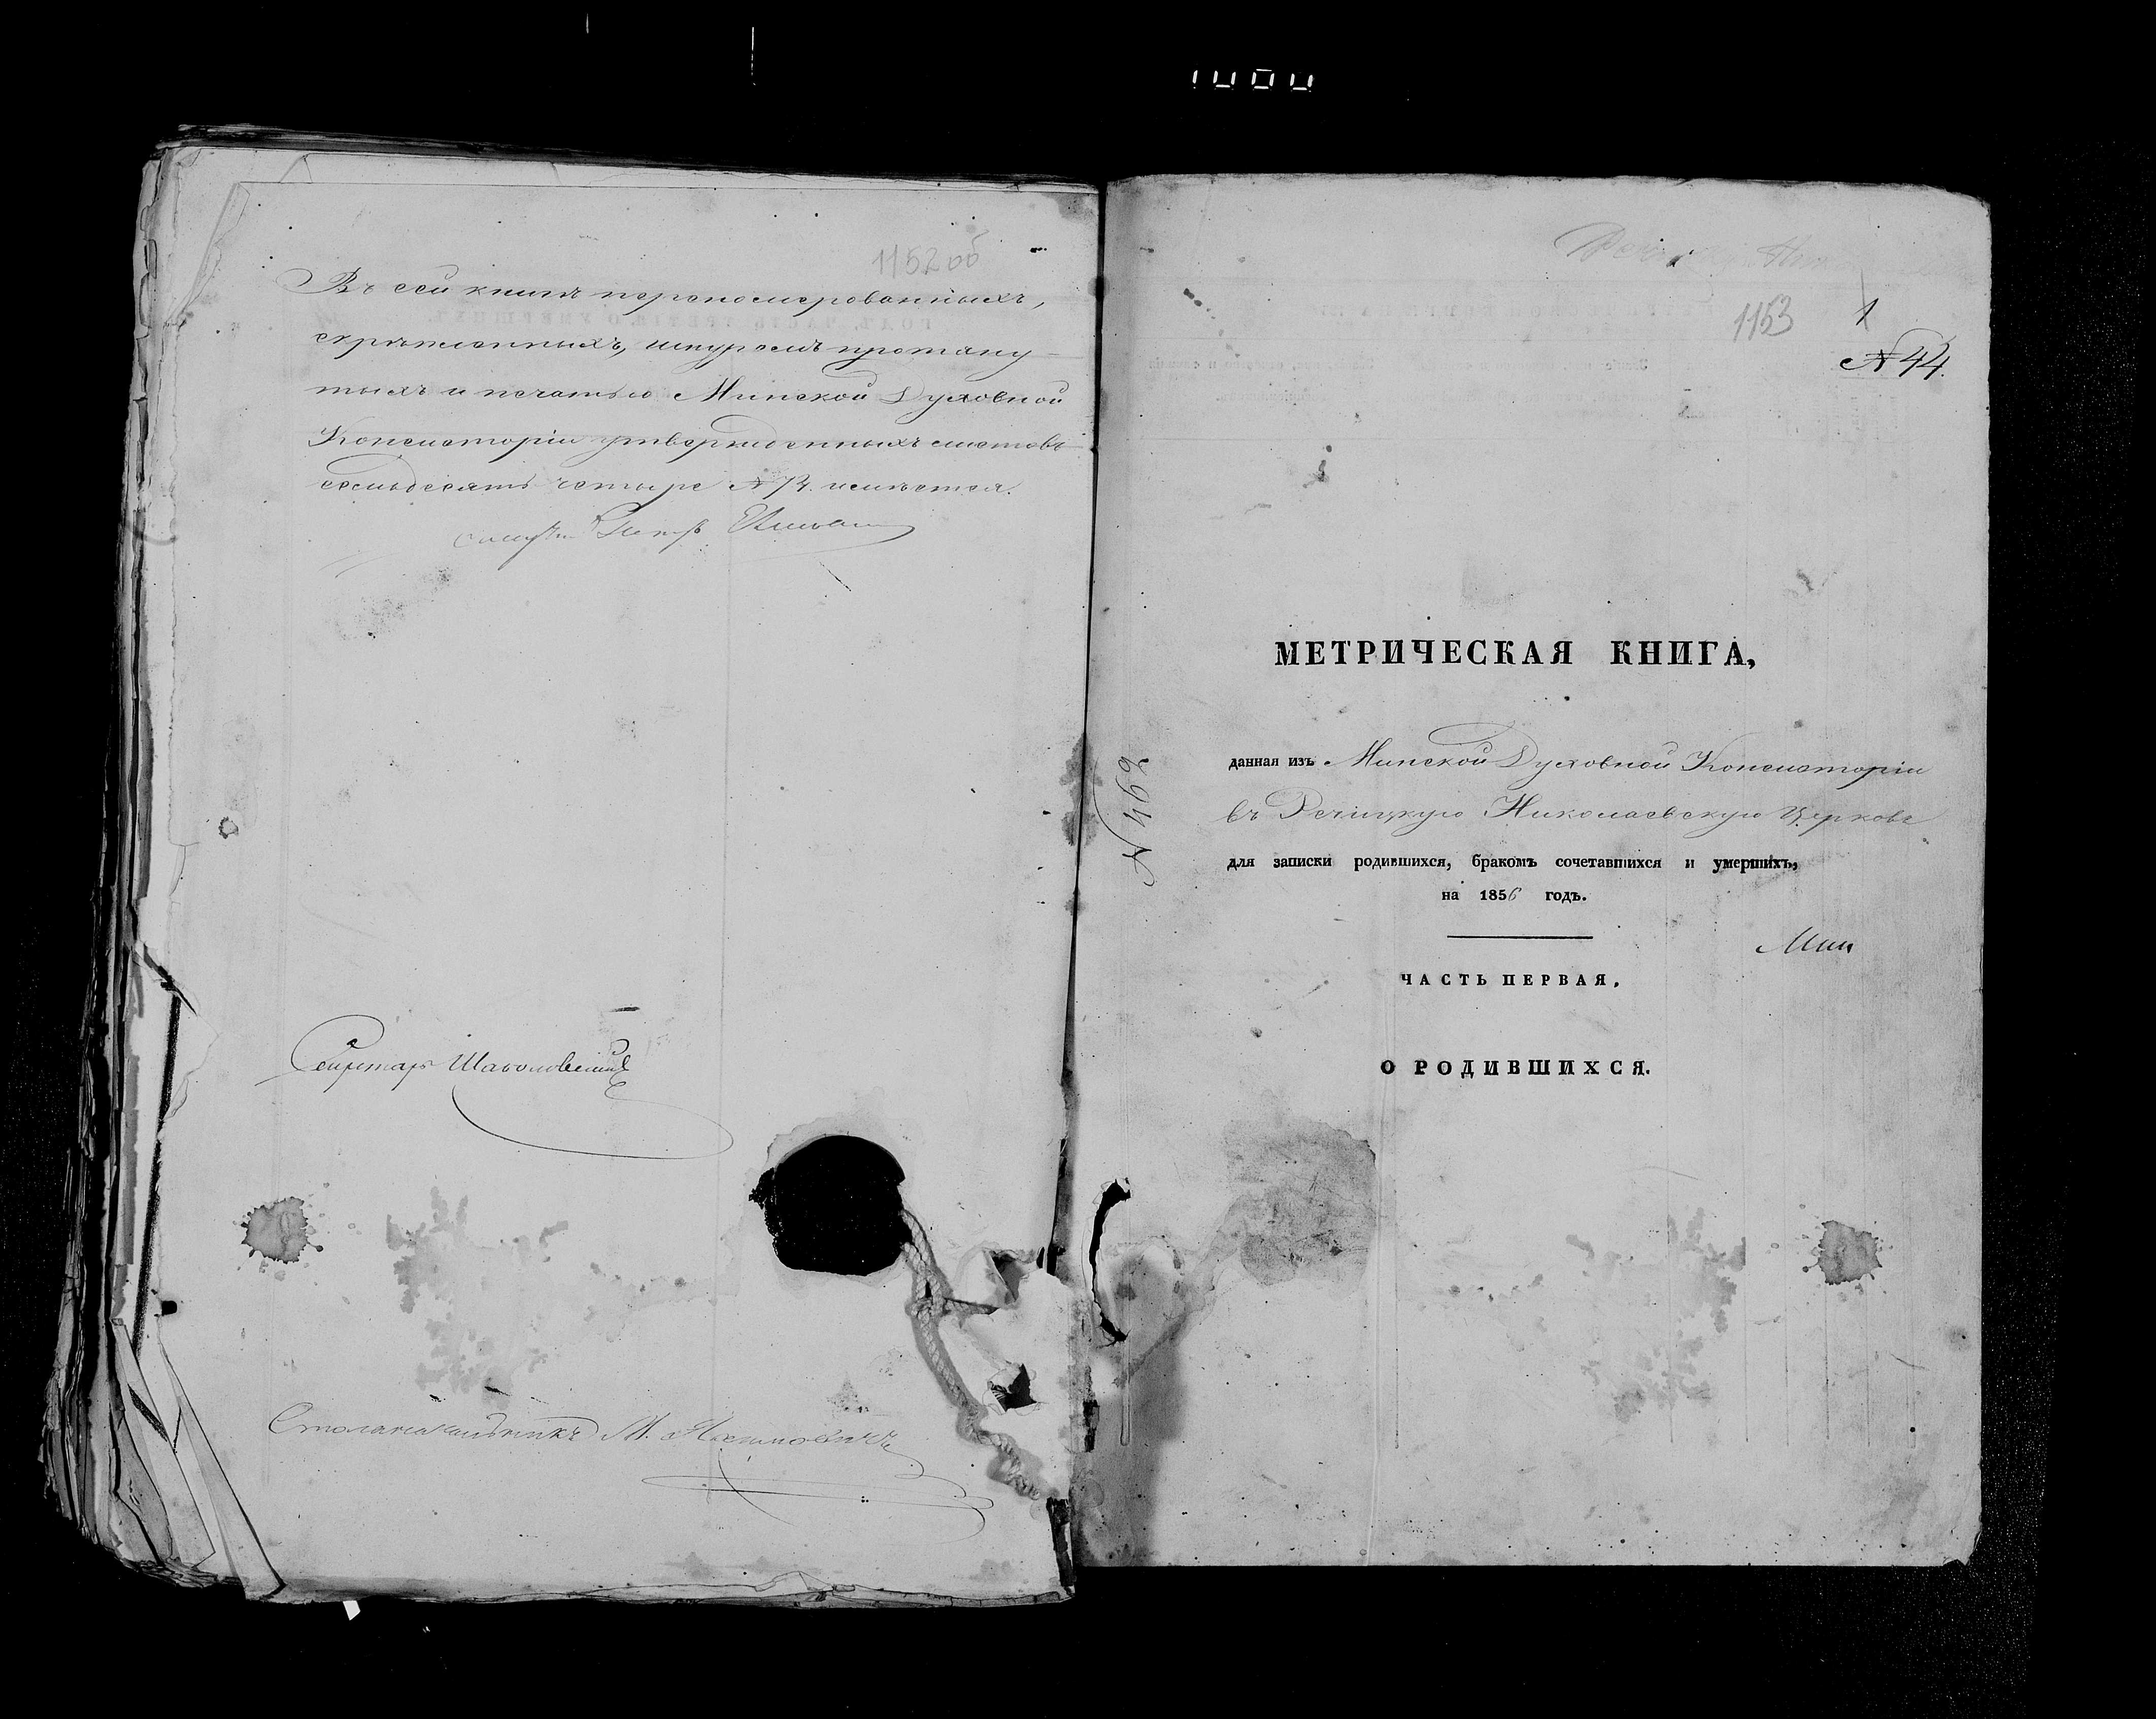 1152 об
Въ сей книгѣ переномерованныхъ,
скрѣпленныхъ, шнуромъ протяну-
тыхъ и печатью Минской Духовной
Консисторіи утвержденныхъ листовъ
семьдесятъ четыре № 74. имѣется.
Секретарь
Столоначальникъ М.
1153
1
№ 44.
МЕТРИЧЕСКАЯ КНИГА,
данная изъ Минской Духовной Консисторіи
въ Речицкую Николаевскую Церковь
для записки родившихся, бракомъ сочетавшихся и умершихъ,
на 1856 годъ.
Мин
ЧАСТЬ ПЕРВАЯ,
О РОДИВШИХСЯ.